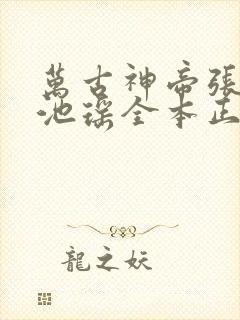 萬古神帝張
池瑤全本正
龍之妖